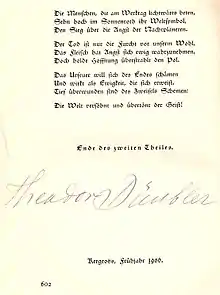 Die Menschen, die am Werktag lichtwärts beten,
Sehn hoch im ihr Weltsymbol,
Den Sieg über die Angst der Nachtplaneten.
Der Tod ist nur die Furcht vor unserm Wohl,
Das Fleisch das Angst sich ewig wahrzunehmen,
Doch holde Hoffnung überstrahlt den Pol.
Das will sich des Endes schämen
Und wirkt als Ewigkeit, die sich erweist,
Tief überwunden sind des Zweifels Schemen:
Die Welt versöhnt und übertönt der Geist!
Ende des zweiten Theiles.
Theodor Däubler
Frühjahr 1906.
602